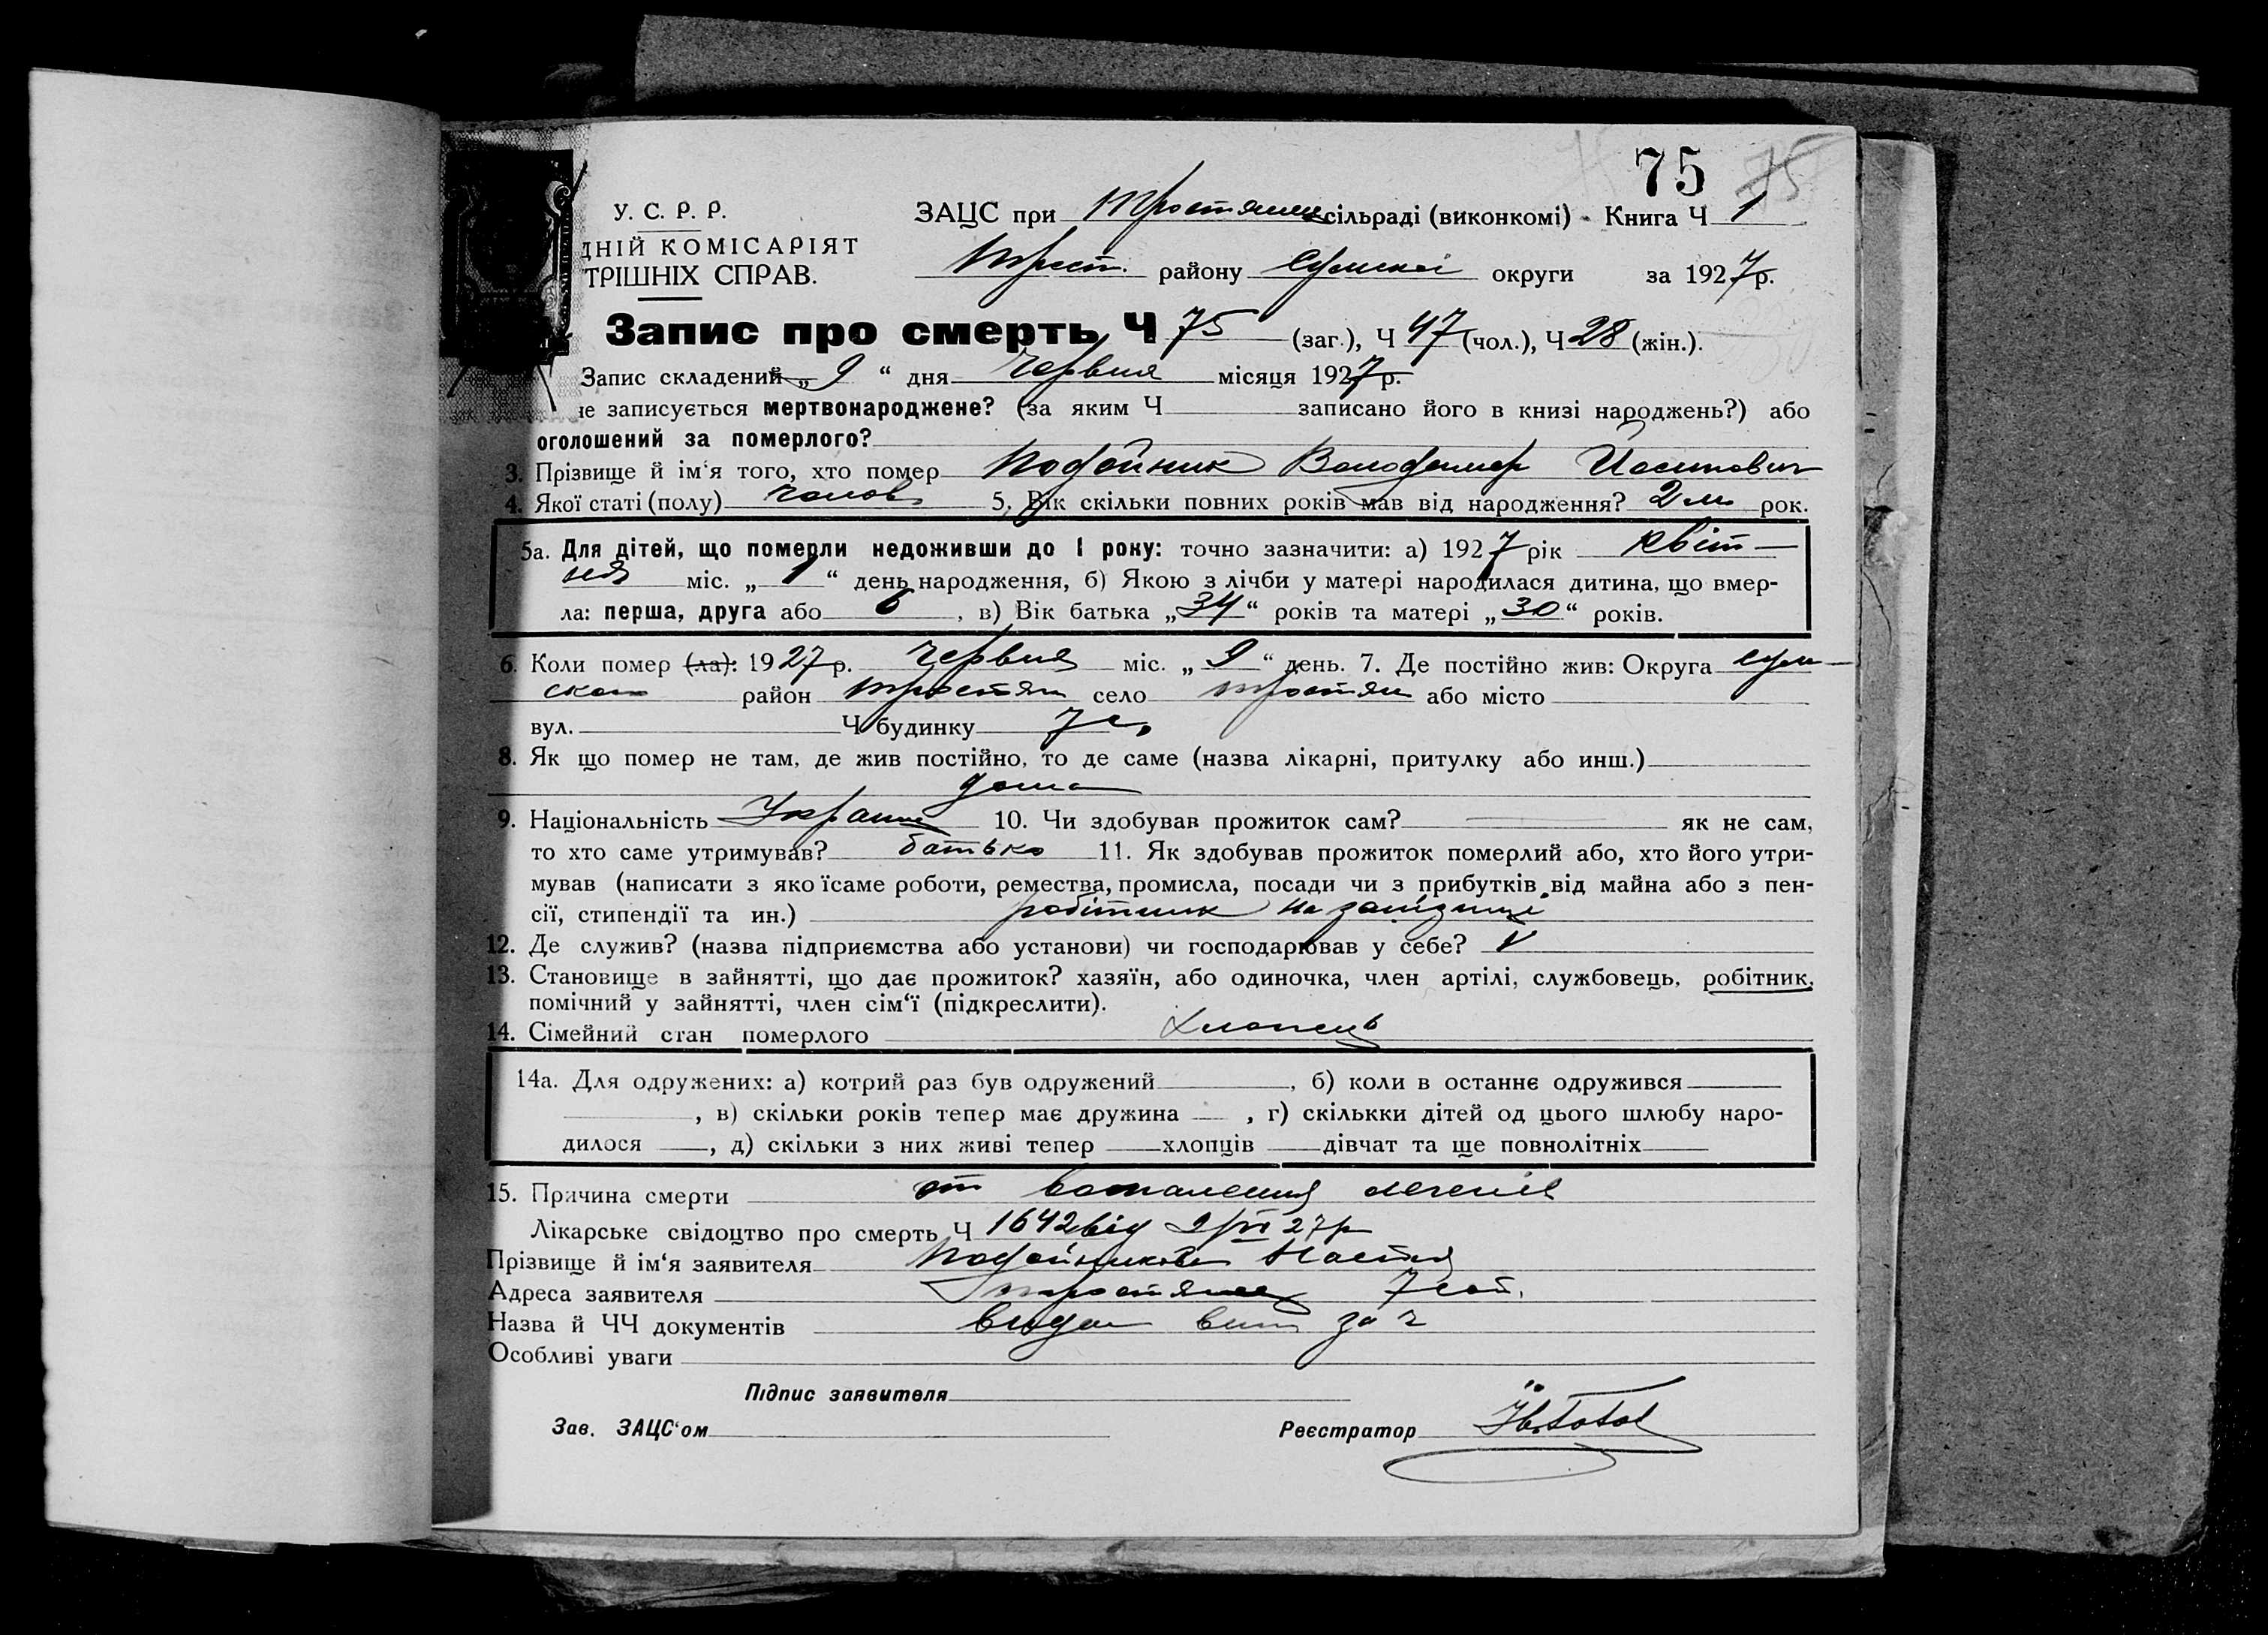 75 75
У. С. Р. Р.
ДНІЙ КОМІСАРІЯТ
ТРІШНІХ СПРАВ.
ЗАЦС при Тростянец сільраді (виконкомі) Книга Ч 1
Трост. району Сумської округи за 1927 р.
Запис про смерть Ч 75 (заг.), Ч 47 (чол.), Ч 28 (жін.).
Запис складений „ 9 “ дня Червня місяця 1927 р.
не записується мертвонароджене? (за яким Ч записано його в книзі народжень?) або
оголошений за померлого?
3. Прізвище й ім‘я того, хто помер Подойник Володимер Йосипович
4. Якої статі (полу) чолов 5. Вік скільки повних років мав від народження? 2 м рок.
5а. Для дітей, що померли недоживши до 1 року: точно зазначити: а) 1927 рік Квіт-
ня міс. „ 1 “ день народження, б) Якою з лічби у матері народилася дитина, що вмер-
ла: перша, друга або 6, в) Вік батька „34“ років та матері „30“ років.
6. Коли помер (ла): 1927 р. Червня міс. „ 9 “ день. 7. Де постійно жив: Округа Сум-
ска район Тростян село Тростян або місто
вул. Ч будинку 7 с
8. Як що помер не там, де жив постійно, то де саме (назва лікарні, притулку або инш.)
дома
9. Національність Украин 10. Чи здобував прожиток сам? як не сам,
то хто саме утримував? батько 11. Як здобував прожиток померлий або, хто його утри-
мував (написати з якоїсаме роботи, ремества, промисла, посади чи з прибутків від майна або з пен-
сії, стипендії та ин.) робітник на залізниці
12. Де служив? (назва підприємства або установи) чи господарював у себе? V
13. Становище в зайнятті, що дає прожиток? хазяїн, або одиночка, член артілі, службовець, робітник,
помічний у зайнятті, член сім‘ї (підкреслити).
14. Сімейний стан померлого Хлопець
14а. Для одружених: а) котрий раз був одружений , б) коли в останнє одружився
, в) скільки років тепер має дружина , г) скількки дітей од цього шлюбу наро-
дилося , д) скільки з них живі тепер хлопців дівчат та ще повнолітніх
15. Причина смерти от воспаления легених
Лікарське свідоцтво про смерть Ч 1642 від 9/VI 27 р
Прізвище й ім‘я заявителя Подойникова Настя
Адреса заявителя Тростянец 7 сот.
Назва й ЧЧ документів за ч
Особливі уваги
Підпис заявителя
Зав. ЗАЦС‘ом Реєстратор